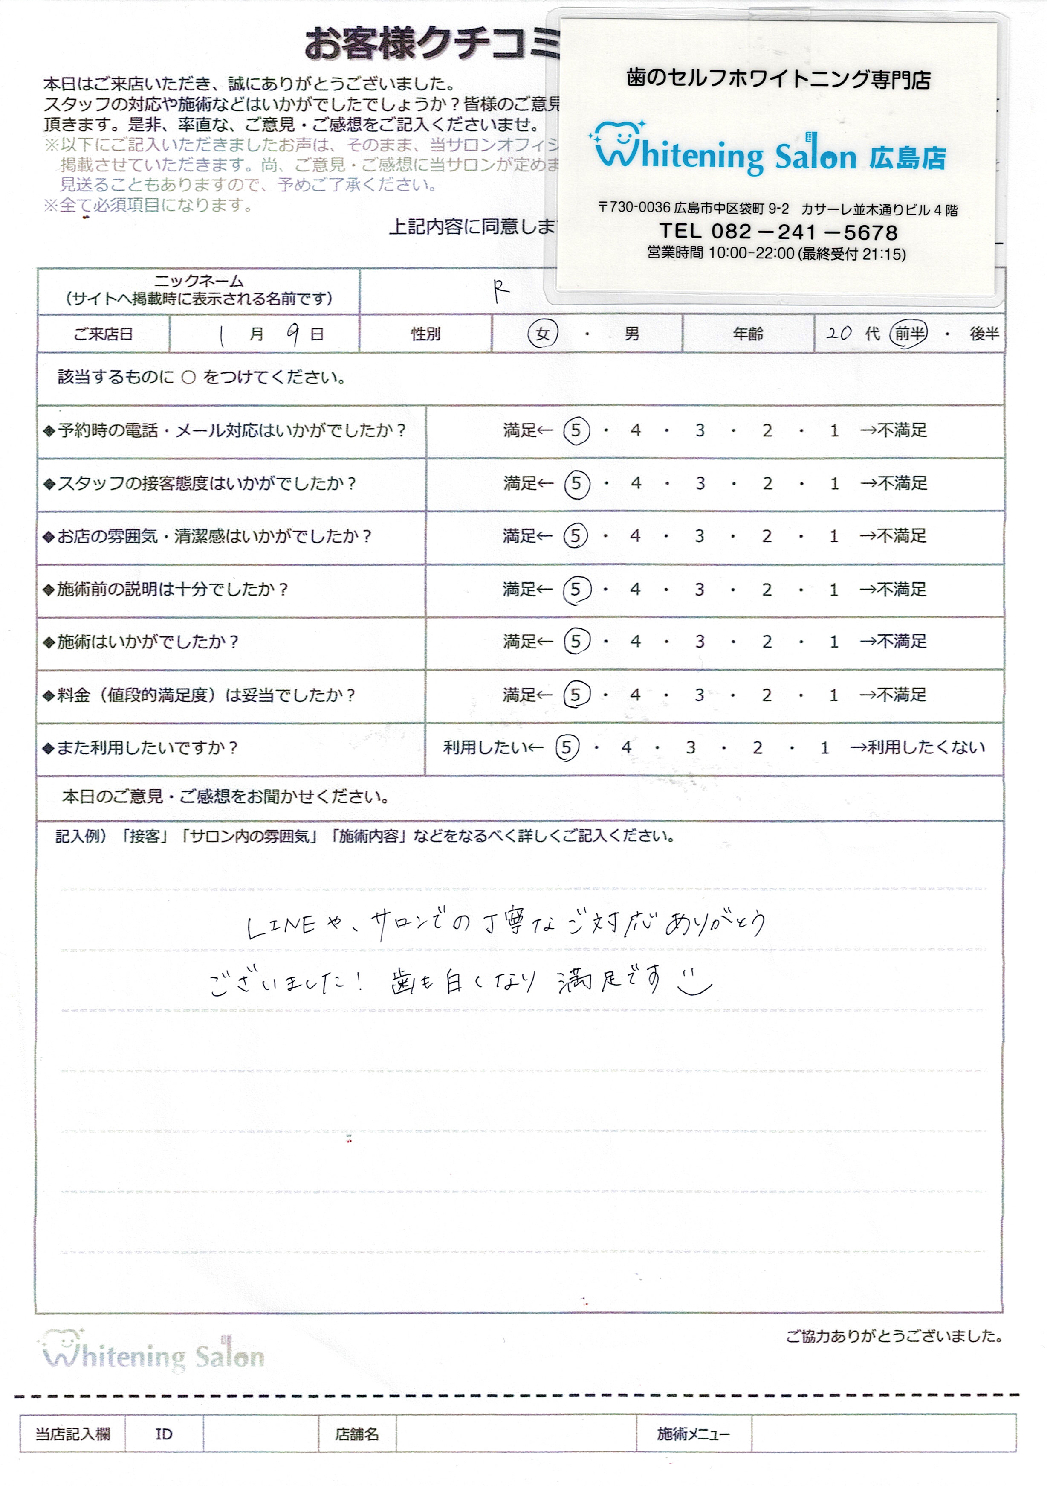 お客様クチコミ
本日はご来店いただき、誠にありがとうございました。
スタッフの対応や施術などはいかがでしたでしょうか？皆様のご意見
頂きます。是非、率直な、ご意見・ご感想をご記入くださいませ。
※以下にご記入いただきましたお声は、そのまま、当サロンオフィシ
掲載させていただきます。尚、ご意見・ご感想に当サロンが定めま
見送ることもありますので、予めご了承ください。
※全て必須項目になります。
上記内容に同意しま
歯のセルフホワイトニング専門店
Whitening Salon 広島店
〒730-0036 広島市中区袋町 9-2 カサーレ並木通りビル 4 階
TEL 082－241－5678
営業時間 10:00-22:00 (最終受付 21:15)
ニックネーム
（サイトへ掲載時に表示される名前です） R
ご来店日 1 月 9 日 性別 女 ・ 男 年齢 20 代 前半 ・ 後半
該当するものに ○ をつけてください。
◆予約時の電話・メール対応はいかがでしたか？ 満足← 5 ・ 4 ・ 3 ・ 2 ・ 1 →不満足
◆スタッフの接客態度はいかがでしたか？ 満足← 5 ・ 4 ・ 3 ・ 2 ・ 1 →不満足
◆お店の雰囲気・清潔感はいかがでしたか？ 満足← 5 ・ 4 ・ 3 ・ 2 ・ 1 →不満足
◆施術前の説明は十分でしたか？ 満足← 5 ・ 4 ・ 3 ・ 2 ・ 1 →不満足
◆施術はいかがでしたか？ 満足← 5 ・ 4 ・ 3 ・ 2 ・ 1 →不満足
◆料金（値段的満足度）は妥当でしたか？ 満足← 5 ・ 4 ・ 3 ・ 2 ・ 1 →不満足
◆また利用したいですか？ 利用したい← 5 ・ 4 ・ 3 ・ 2 ・ 1 →利用したくない
本日のご意見・ご感想をお聞かせください。
記入例）「接客」「サロン内の雰囲気」「施術内容」などをなるべく詳しくご記入ください。
LINEや、サロンでの丁寧なご対応ありがとう
ございました！ 歯も白くなり満足です
ご協力ありがとうございました。
Whitening Salon
当店記入欄 ID 店舗名 施術メニュー